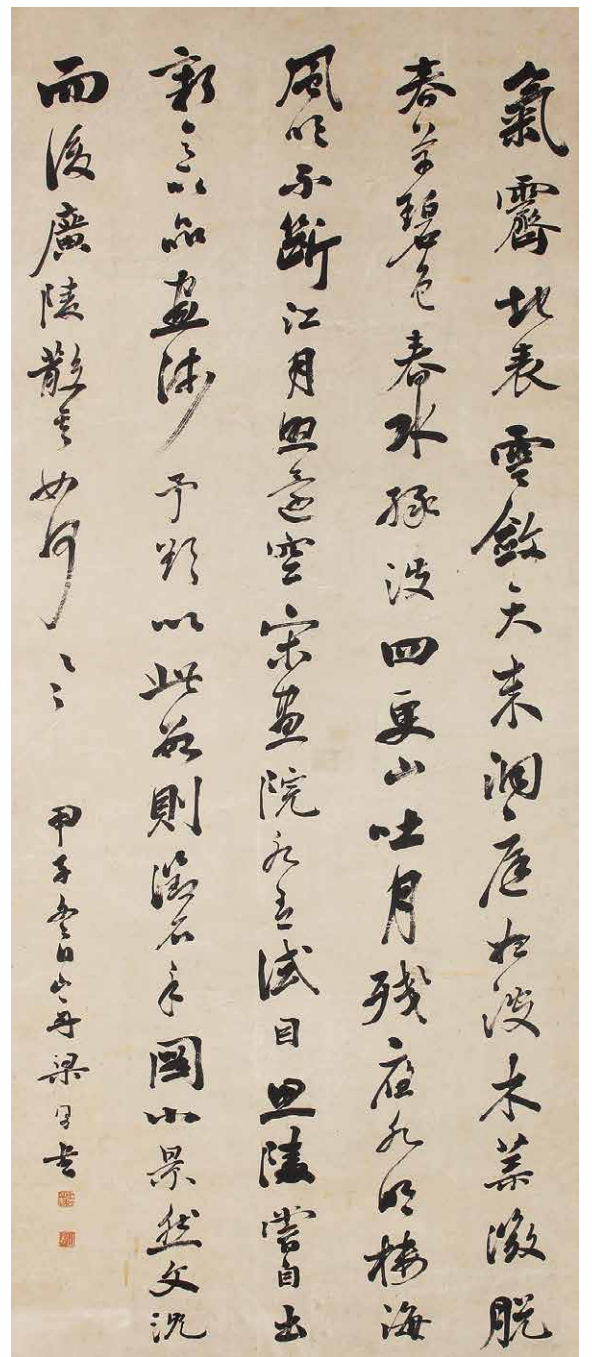 氣霽地表雲斂天末洞庭始波木葉微脫
春草碧色春水綠波四更山吐月殘夜水明樓海
風吹不斷江月照還空宋畫院各立試目思陵嘗自出
新意以品畫師予欲以此數則徵名手圖小景然文沈
而後廣陵散矣如何々々
甲子冬日山舟梁同書